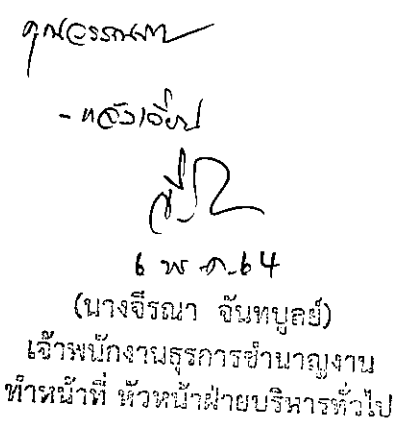 คุณวรรณภา
- แจ้งเวียน
6 พ.ค. 64
(นางจีรณา จันทบูลย์)
เจ้าพนักงานธุรการชำนาญงาน
ทำหน้าที่ หัวหน้าฝ่ายบริหารทั่วไป